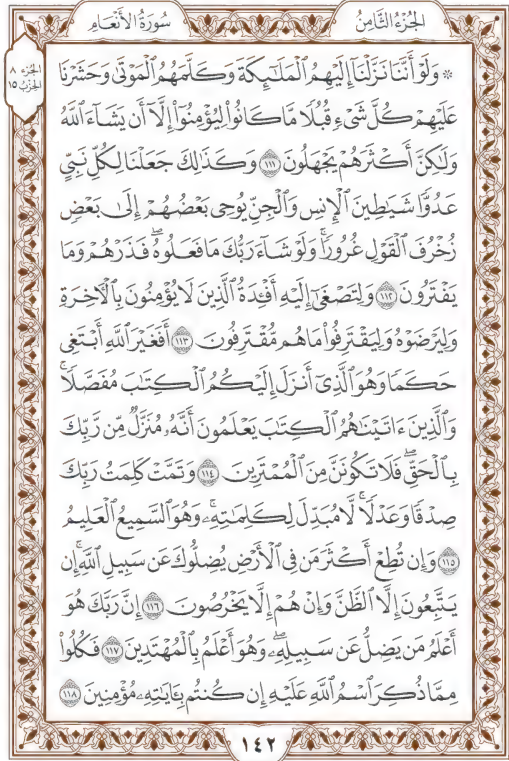 الجُزْءُ الثَّامِنُ
سُورَةُ الأَنْعَامِ
الجُزْء ٨
الحِزْب ١٥
۞ وَلَوْ أَنَّنَا نَزَّلْنَآ إِلَيْهِمُ ٱلْمَلَٰٓئِكَةَ وَكَلَّمَهُمُ ٱلْمَوْتَىٰ وَحَشَرْنَا
عَلَيْهِمْ كُلَّ شَىْءٍ قُبُلًا مَّا كَانُوا۟ لِيُؤْمِنُوٓا۟ إِلَّآ أَن يَشَآءَ ٱللَّهُ
وَلَٰكِنَّ أَكْثَرَهُمْ يَجْهَلُونَ ١١١ وَكَذَٰلِكَ جَعَلْنَا لِكُلِّ نَبِىٍّ
عَدُوًّا شَيَٰطِينَ ٱلْإِنسِ وَٱلْجِنِّ يُوحِى بَعْضُهُمْ إِلَىٰ بَعْضٍ
زُخْرُفَ ٱلْقَوْلِ غُرُورًا ۚ وَلَوْ شَآءَ رَبُّكَ مَا فَعَلُوهُ ۖ فَذَرْهُمْ وَمَا
يَفْتَرُونَ ١١٢ وَلِتَصْغَىٰٓ إِلَيْهِ أَفْـِٔدَةُ ٱلَّذِينَ لَا يُؤْمِنُونَ بِٱلْـَٔاخِرَةِ
وَلِيَرْضَوْهُ وَلِيَقْتَرِفُوا۟ مَا هُم مُّقْتَرِفُونَ ١١٣ أَفَغَيْرَ ٱللَّهِ أَبْتَغِى
حَكَمًا وَهُوَ ٱلَّذِىٓ أَنزَلَ إِلَيْكُمُ ٱلْكِتَٰبَ مُفَصَّلًا ۚ
وَٱلَّذِينَ ءَاتَيْنَٰهُمُ ٱلْكِتَٰبَ يَعْلَمُونَ أَنَّهُۥ مُنَزَّلٌ مِّن رَّبِّكَ
بِٱلْحَقِّ ۖ فَلَا تَكُونَنَّ مِنَ ٱلْمُمْتَرِينَ ١١٤ وَتَمَّتْ كَلِمَتُ رَبِّكَ
صِدْقًا وَعَدْلًا ۚ لَّا مُبَدِّلَ لِكَلِمَٰتِهِۦ ۚ وَهُوَ ٱلسَّمِيعُ ٱلْعَلِيمُ
١١٥ وَإِن تُطِعْ أَكْثَرَ مَن فِى ٱلْأَرْضِ يُضِلُّوكَ عَن سَبِيلِ ٱللَّهِ ۚ إِن
يَتَّبِعُونَ إِلَّا ٱلظَّنَّ وَإِنْ هُمْ إِلَّا يَخْرُصُونَ ١١٦ إِنَّ رَبَّكَ هُوَ
أَعْلَمُ مَن يَضِلُّ عَن سَبِيلِهِۦ ۖ وَهُوَ أَعْلَمُ بِٱلْمُهْتَدِينَ ١١٧ فَكُلُوا۟
مِمَّا ذُكِرَ ٱسْمُ ٱللَّهِ عَلَيْهِ إِن كُنتُم بِـَٔايَٰتِهِۦ مُؤْمِنِينَ ١١٨
١٤٢